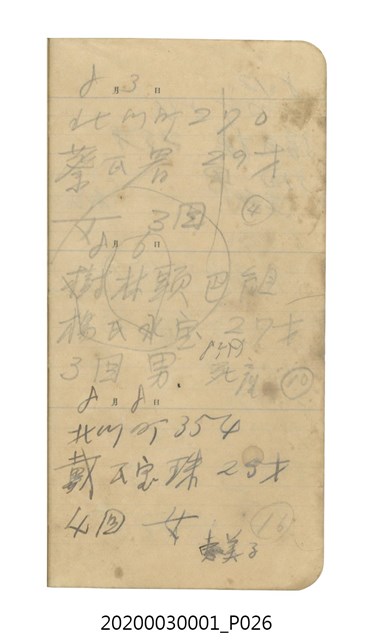 8月3日
北門町270
蔡氏 29才
女 3回 ④
8月6日
樹林頭 四組
楊氏水宝 27才
3回 男 死産 ⑩
8月8日
北門町354
戴氏宝珠 25才
4回 女 ⑯
美子
20200030001_P026